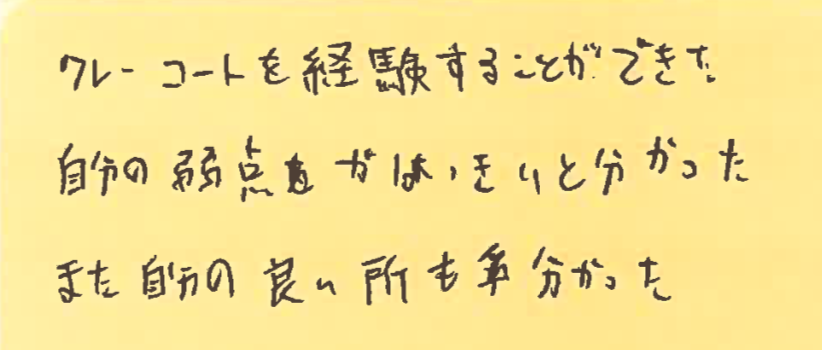 クレーコートを経験することができた
自分の弱点がはっきりと分かった
また自分の良い所も分かった